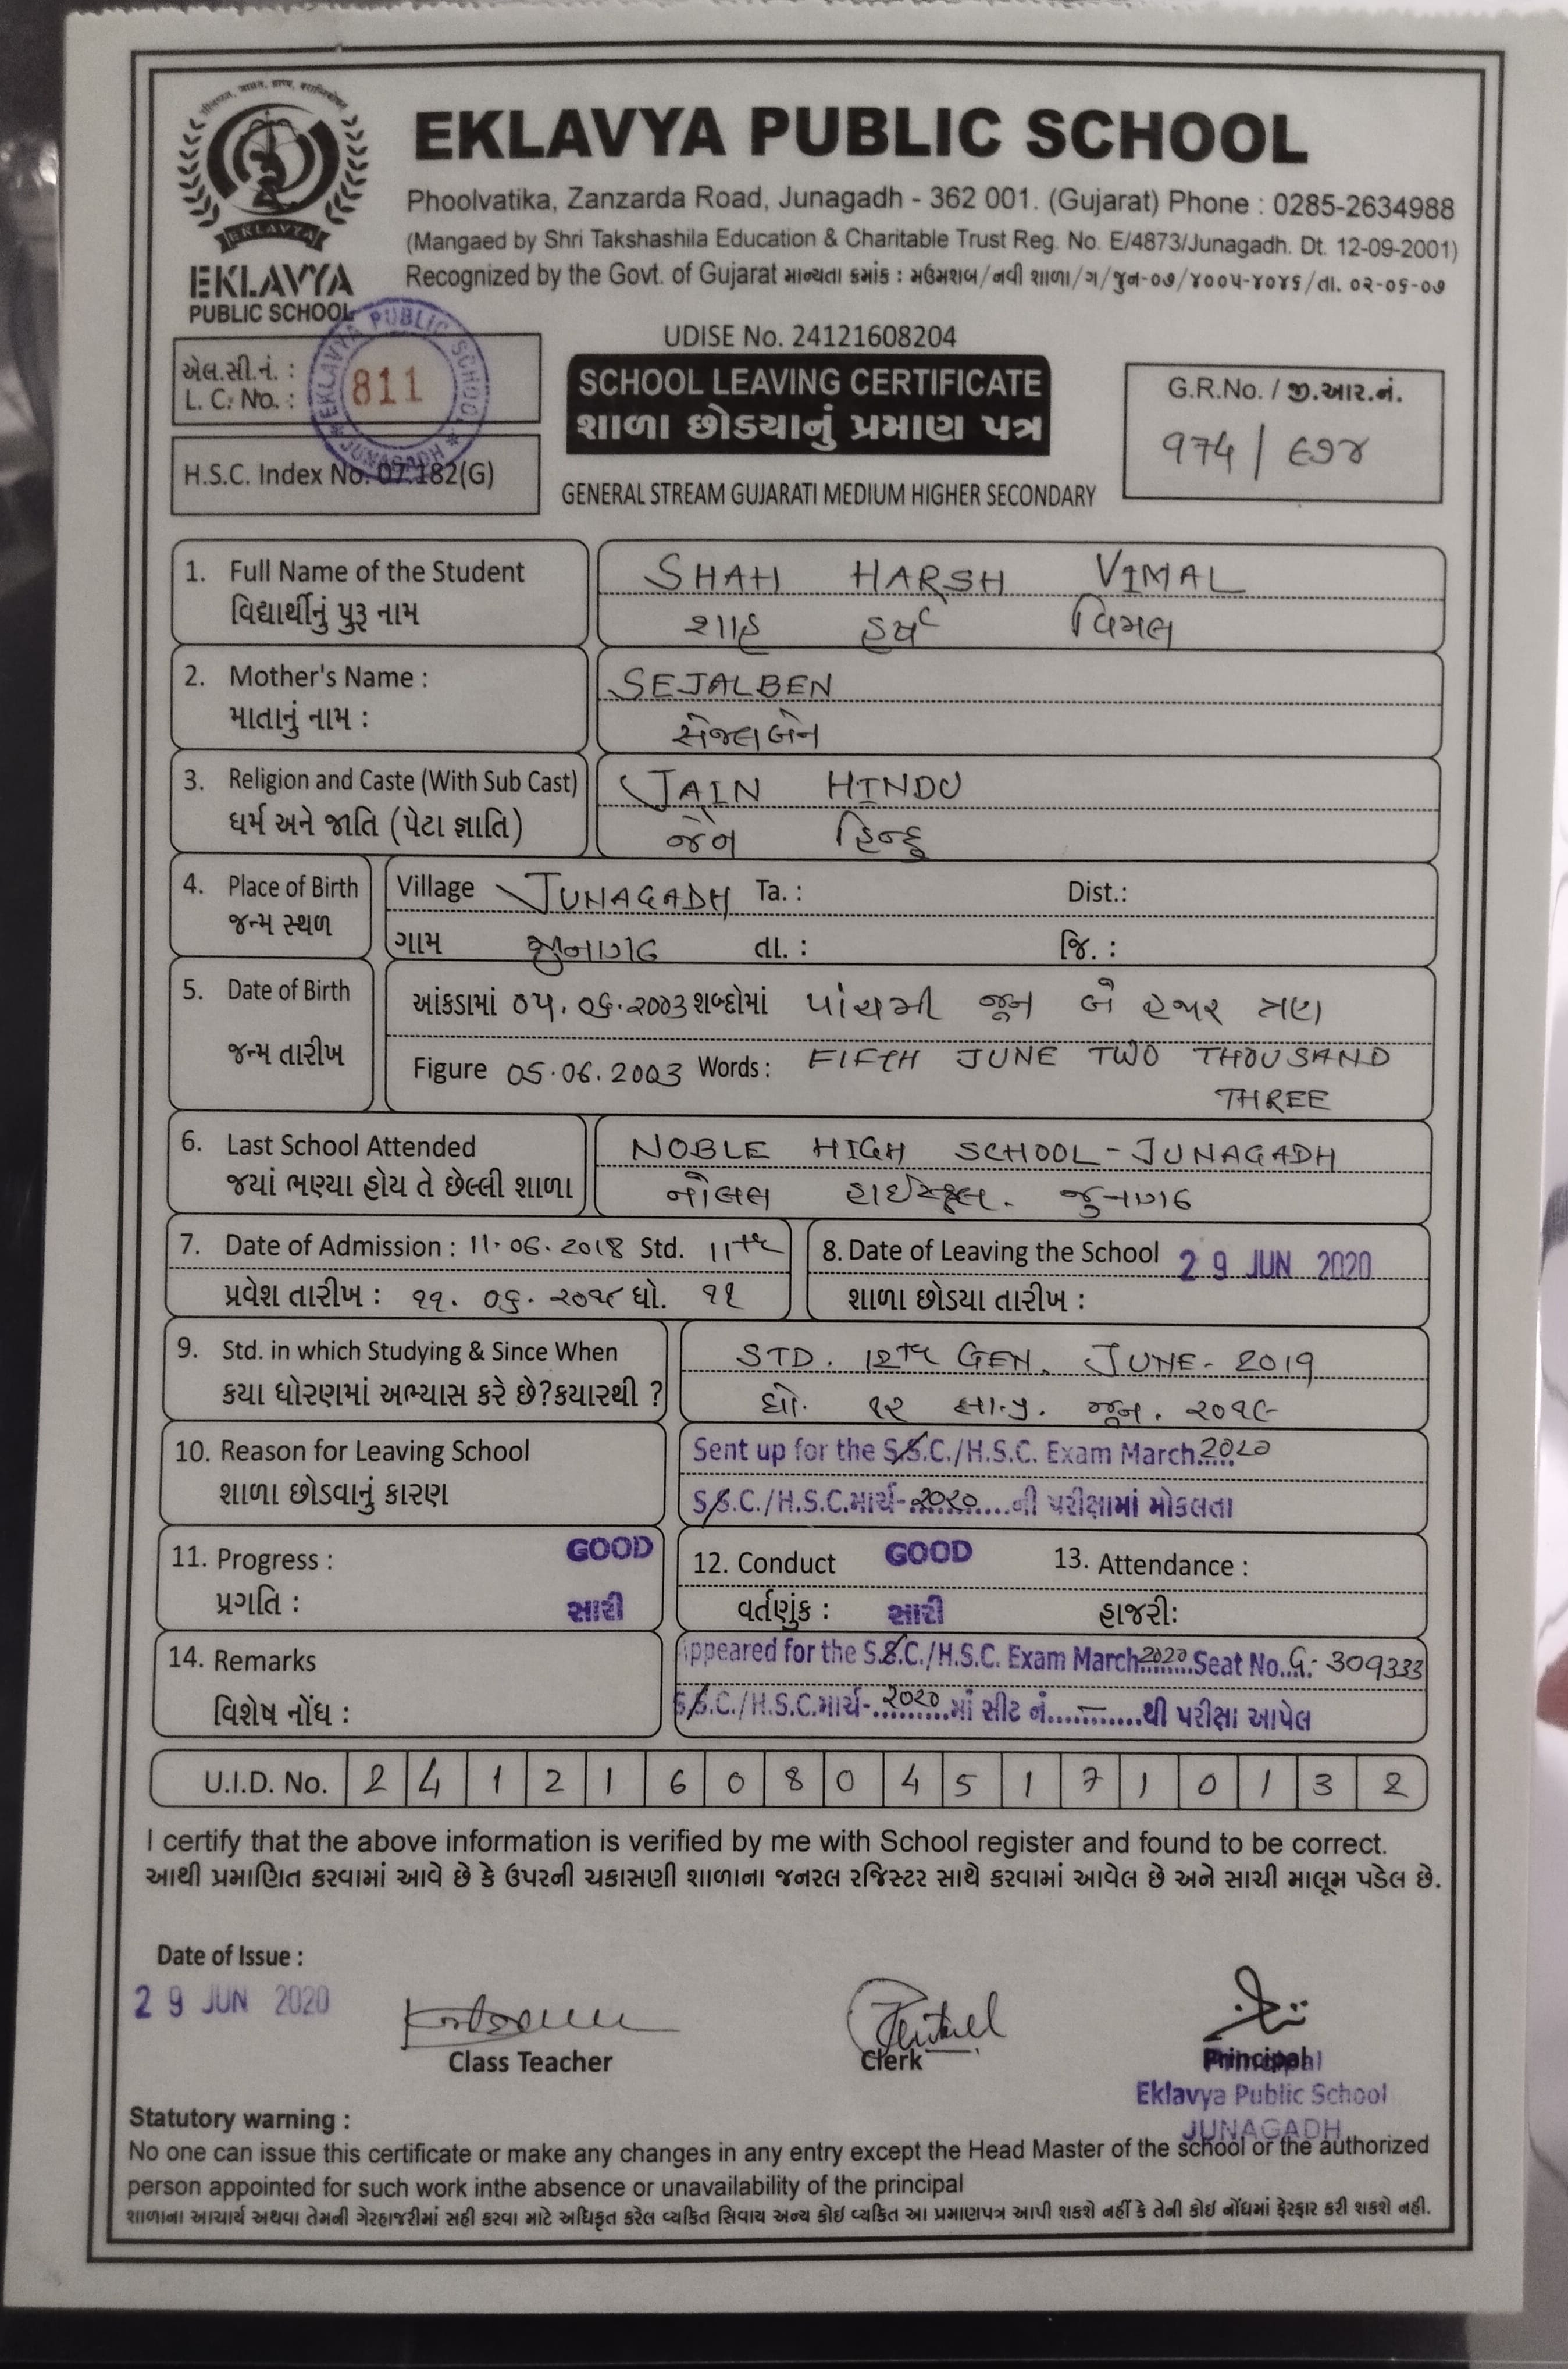 EKLAVYA PUBLIC SCHOOL
Phoolvatika, Zanzarda Road, Junagadh - 362 001. (Gujarat) Phone : 0285-2634988
(Mangaed by Shri Takshashila Education & Charitable Trust Reg. No. E/4873/Junagadh. Dt. 12-09-2001)
Recognized by the Govt. of Gujarat માન્યતા ક્રમાંક : મઉમશબ/નવી શાળા/ગ/જુન-૦૭/૪૦૦૫-૪૦૪૬/તા. ૦૨-૦૬-૦૭
EKLAVYA
EKLAVYA
PUBLIC SCHOOL
UDISE No. 24121608204
એલ.સી.નં. :
L. C. No. : 811
EKLAVYA PUBLIC SCHOOL * JUNAGADH *
H.S.C. Index No. 07.182(G)
SCHOOL LEAVING CERTIFICATE
શાળા છોડયાનું પ્રમાણ પત્ર
GENERAL STREAM GUJARATI MEDIUM HIGHER SECONDARY
G.R.No. / જી.આર.નં.
974 / ૯૭૪
1. Full Name of the Student SHAH HARSH VIMAL
વિદ્યાર્થીનું પુરૂ નામ શાહ હર્ષ વિમલ
2. Mother's Name : SEJALBEN
માતાનું નામ : સેજલબેન
3. Religion and Caste (With Sub Cast) JAIN HINDU
ધર્મ અને જાતિ (પેટા જ્ઞાતિ) જૈન હિન્દુ
4. Place of Birth Village JUNAGADH Ta. : Dist.:
જન્મ સ્થળ ગામ જુનાગઢ તા. : જિ. :
5. Date of Birth આંકડામાં ૦૫.૦૬.૨૦૦૩ શબ્દોમાં પાંચમી જૂન બે હજાર ત્રણ
જન્મ તારીખ Figure 05.06.2003 Words : FIFTH JUNE TWO THOUSAND
THREE
6. Last School Attended NOBLE HIGH SCHOOL-JUNAGADH
જયાં ભણ્યા હોય તે છેલ્લી શાળા નોબલ હાઈસ્કૂલ. જુનાગઢ
7. Date of Admission : 11.06.2018 Std. 11th 8. Date of Leaving the School 29 JUN 2020
પ્રવેશ તારીખ : ૧૧. ૦૬. ૨૦૧૮ ધો. ૧૧ શાળા છોડયા તારીખ :
9. Std. in which Studying & Since When STD. 12th GEN. JUNE-2019
કયા ધોરણમાં અભ્યાસ કરે છે?કયારથી ? ધો. ૧૨ સા.પ્ર. જૂન. ૨૦૧૯
10. Reason for Leaving School Sent up for the S.S.C./H.S.C. Exam March.....2020
શાળા છોડવાનું કારણ S.S.C./H.S.C.માર્ચ-..2020.....ની પરીક્ષામાં મોકલતા
11. Progress : GOOD 12. Conduct GOOD 13. Attendance :
પ્રગતિ : સારી વર્તણુંક : સારી હાજરી:
14. Remarks Appeared for the S.S.C./H.S.C. Exam March.2020.Seat No. G-309333
વિશેષ નોંધ : S.S.C./H.S.C.માર્ચ-..2020..માં સીટ નં.....–.....થી પરીક્ષા આપેલ
U.I.D. No. 2 4 1 2 1 6 0 8 0 4 5 1 7 1 0 1 3 2
I certify that the above information is verified by me with School register and found to be correct.
આથી પ્રમાણિત કરવામાં આવે છે કે ઉપરની ચકાસણી શાળાના જનરલ રજિસ્ટર સાથે કરવામાં આવેલ છે અને સાચી માલૂમ પડેલ છે.
Date of Issue :
29 JUN 2020
Class Teacher Clerk Principal
Principal
Eklavya Public School
JUNAGADH
Statutory warning :
No one can issue this certificate or make any changes in any entry except the Head Master of the school or the authorized
person appointed for such work inthe absence or unavailability of the principal
શાળાના આચાર્ય અથવા તેમની ગેરહાજરીમાં સહી કરવા માટે અધિકૃત કરેલ વ્યકિત સિવાય અન્ય કોઈ વ્યકિત આ પ્રમાણપત્ર આપી શકશે નહીં કે તેની કોઈ નોંધમાં ફેરફાર કરી શકશે નહી.